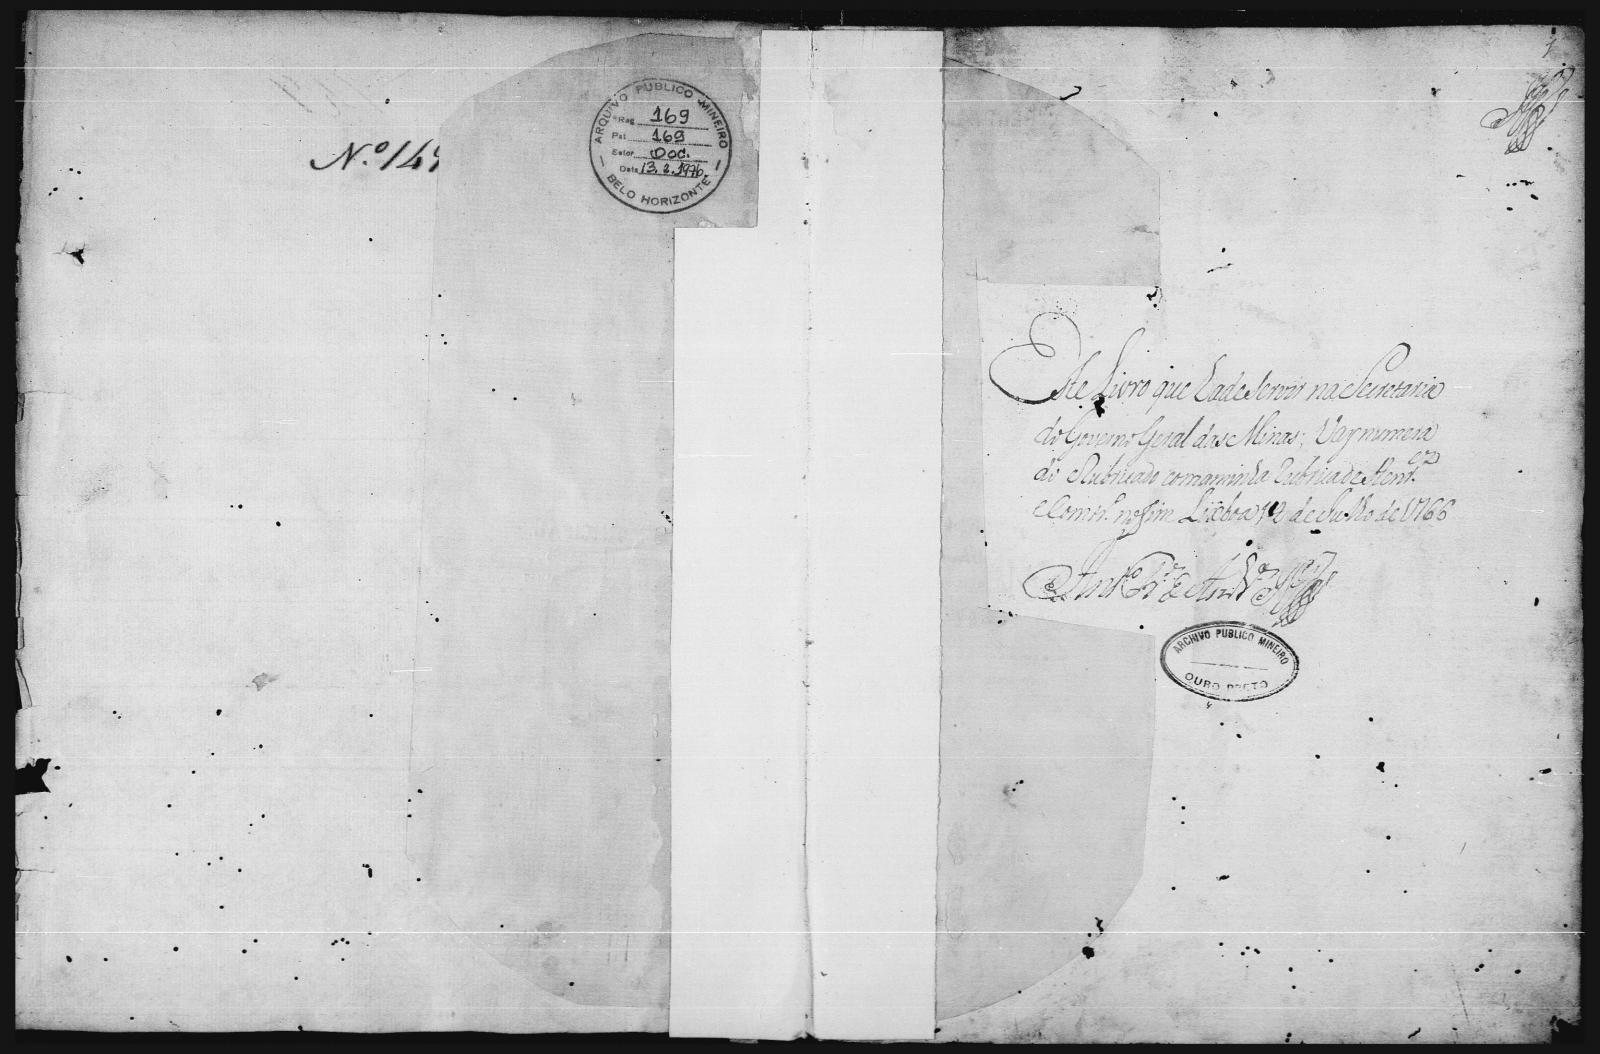 N.º 149
ARQUIVO PUBLICO MINEIRO
Reg 169
Pst 169
Estor Doc.
Data 13.2.1976
BELO HORIZONTE
1
Este Livro que hade servir na Secretaria
do Governo Geral das Minas; Vay numera
do e Rubricado com a minha Rubrica de
e no fim Lixboa de Julho de 1766
ARCHIVO PUBLICO MINEIRO
OURO PRETO